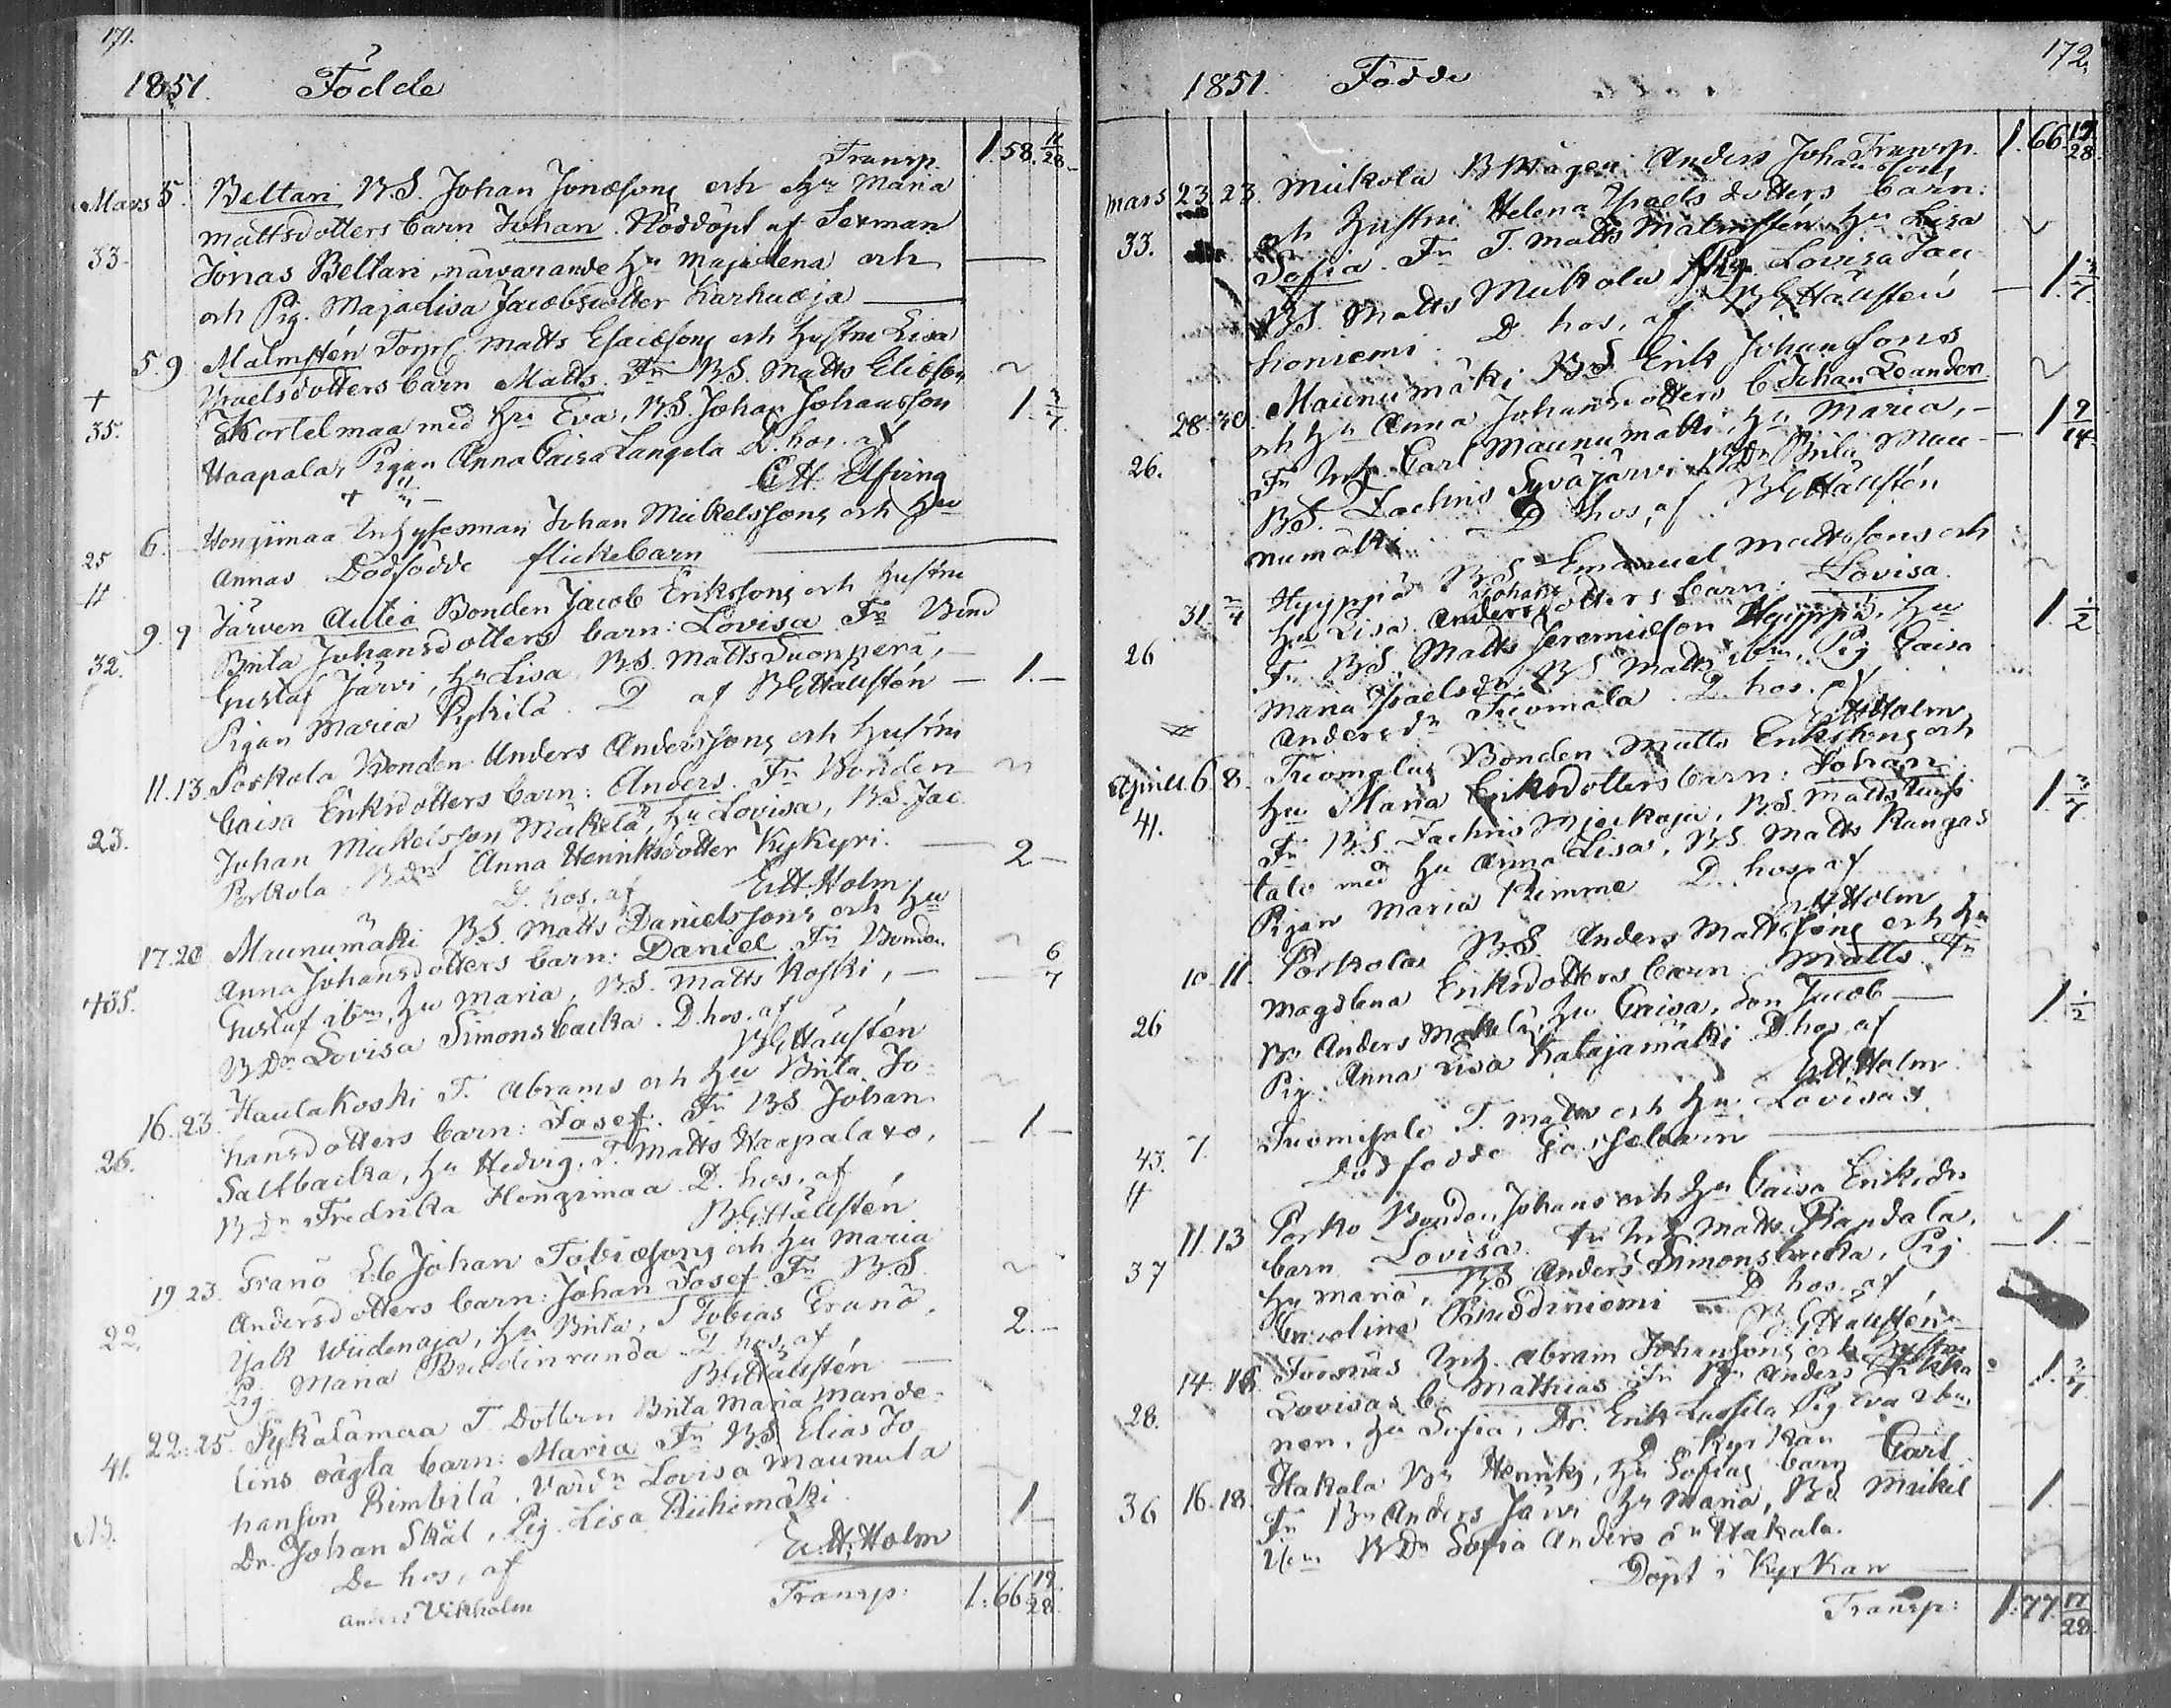 171.
1851. Födde
Transp. 1. 58. 11/28
Mars 5. Beltari B.S. Johan Jonæsons och Hu Maria
Mattsdotters barn Johan. Nöddöpt af Sexman
33. Jonas Beltari, närvarande Hu Majalena och
och Pig. Maja Lisa Jacobsdotter Karhuoja
5 9 Malmstén Torp. Matts Esaiæsons och Hustru Lisa
+ Ysraelsdotters barn Matts. Fr B.S. Matts Eliæson
35. Kortelmaa med Hu Eva, B.S. Johan Johansson 1. 3/7
Haapala, Pigan Anna Caisa Langela D. hos. af
E.H. Elfving
6. Hongimaa Inhysesman Johan Mickelssons och Hu
25 Annas Dödfödde flickebarn
9. 9 Järven Autio Bonden Jacob Erikssons och Hustru
32. Brita Johansdotters barn: Lovisa Fr Bond
Gustaf Järvi, Hu Lisa B.S. Matts Suonperä,
Pigan Maria Pykilä. D af BGHällstén 1.
11. 13. Poskola Bonden Anders Anderssons och Hustru
Caisa Eriksdotters barn: Anders. Fr Bonden
23. Johan Mickelsson Mäkelä, Hu Lovisa, B.S. Jac.
Porkola: Bdr Anna Henriksdotter Kykyri. 2
D. hos, af E.H. Holm
17. 20 Maunumäki B.S. Matts Danielssons och Hu
Anna Johansdotters barn: Daniel Fr Bonden
+35. Gustaf ibm, Hu Maria, B.S. Matts Koski, 6/7
B Dr Lovisa Simonsbacka. D. hos. af
BGHällstén
16. 23. Haulakoski T. Abrams och Hu Brita Jo
hansdotters barn: Josef. Fr B.S. Johan
26. Saltbacka, Hu Hedvig, T. Matts Haapalaxo, 1.
B Dr Fredrika Hongimaa D. hos. af
BGHällstén
19 23. Granö Eb Johan Tobiæsons och Hu Maria
Andersdotters barn: Johan Josef Fr B.S.
22. Ysak Wiidenoja, Hu Brita, S Tobias Granö, 2.
Pig Maria D. hos, af
BGHällstén
22. 25. Pykälämaa T. Dottern Brita Maria Mande
41. lins oägta barn: Maria Fr B.S. Elias Jo
hanson Rimbilä, Lovisa Maunula
Dr. Johan Skål, Pig. Lisa Riihimäki 1
D hos, af E.H. Holm
Anders Vikholm Transp: 1: 66 19/28
172.
1851. Födde
Transp. 1. 66. 19/28
Mars 23. 23. Mickola BMågen Anders Johanssons
och Hustru Helena Ysraelsdotters barn:
33. Sofia. Fr T. Matts Malmstén Hu Lisa
B.S. Matts Mickola Pig Lovisa Jau 1. 3/7
honiemi. D. hos, af BGHällstén
28. 30. Maunumäki B.S. Erik Johanssons
och Hu Anna Johansdotters b Johan Leander
26. Fr Inh. Carl Maunumäki, Hu Maria, 1 9/14
B.S. Zachris Syväjärvi BDr Brita Mau
numäki D hos, af BGHällstén
31. 2/4 Hyyppä B.S. Emanuel Mattssons och
Hu Lisa Johansdotters barn: Lovisa
26 Fr B.S. Matts Jeremiæson Hyyppä, Hu 1. 1/2
Maria Ysraelsdr B.S. Matts ibm, Pig Caisa
Andersdr Tuomala. D. hos. af
E.H. Holm
April 6 8. Tuomala Bonden Matts Erikssons och
Hu Maria Eriksdotters barn: Johan
41. Fr B.S. Zachris Myrkoja, B.S. Matts Uusi 1. 3/7
talo med Hu Anna Lisa, B.S. Matts Kangas
Pigan Maria Rimme D. hos. af
E.H. Holm
10. 11. Porkola B.S. Anders Mattssons och Hu
Magdlena Eriksdotters barn: Matts Fr
26 Br Anders Mäkelä, Hu Caisa, Son Jacob 1. 1/2
Pig. Anna Lisa Katajamäki D. hos af
E.H. Holm
7. Tuomisalo T. Matts och Hu Lovisas
43. Dödfödde Gossebarn
11. 13 Porko Bonden Johans och Hu Caisa Eriksdrs
barn Lovisa. Fr Inh. Matts Riandala, 1.
37 Hu Maria, B.S. Anders Simonsbacka, Pig
Carolina D hos. af
BGHällstén
14. 16. Forsnäs Inh. Abram Johanssons och Hustru
Lovisas b. Mathias Fr Br Anders 1. 3/7
28. nen, Hu Sofia, Dr. Erik Lassila Pig Eva ibm
D. i Kyrkan
36 16. 18. Hakala Br Henriks, Hu Sofias barn Carl
Fr Br Anders Järvi Hu Maria, B.S. Mickel 1.
ibm B Dr Sofia Andersdr Hakala.
Döpt i Kyrkan
Transp: 1: 77. 17/28